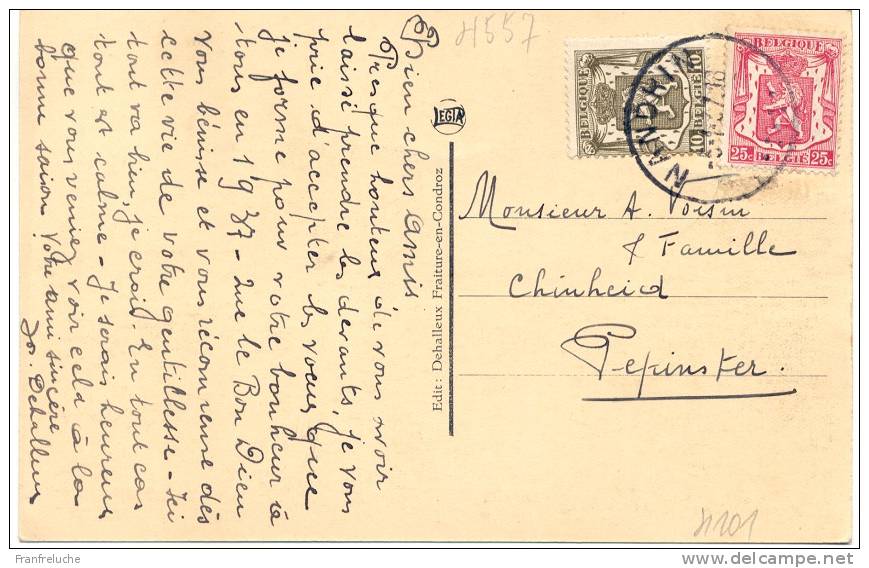 Bien chers Amis
Presque honteux de vous avoir
laissé prendre les devants, je vous
prie d'accepter les voeux que
je forme pour votre bonheur à
tous en 1937 - Que le Bon Dieu
vous bénisse et vous récompense dès
cette vie de votre gentillesse - Ici
tout va bien, je crois. En tout cas
tout est calme - Je serais heureux
que vous veniez voir cela à la
bonne saison. Votre ami sincère
Jos. Dehalleux
4557
LEGIA
Edit: Dehalleux Fraiture-en-Condroz
BELGIQUE
10 BELGIE 10
BELGIQUE
25c BELGIË 25c
NANDRIN
Monsieur A. Voisin
& Famille
Chinheid
Pepinster.
4101
Franfreluche
www.delcampe.net